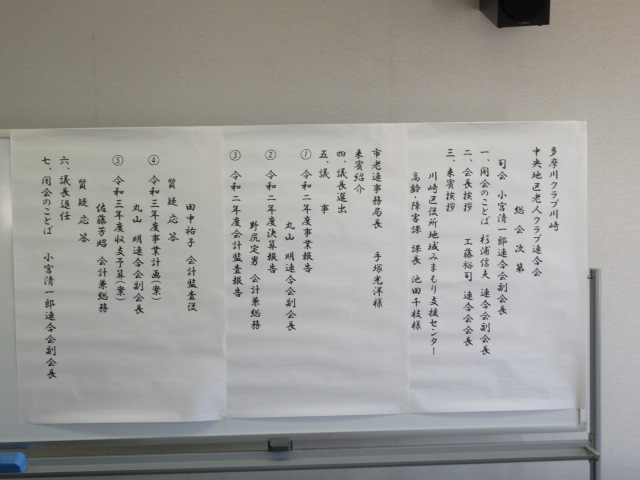 多摩川クラブ川崎
中央地区老人クラブ連合会
総会次第
司会 小宮清一郎連合会副会長
一、開会のことば 杉浦信夫 連合会副会長
二、会長挨拶 工藤裕司 連合会会長
三、来賓挨拶
川崎区役所地域みまもり支援センター
高齢・障害課 課長 池田千枝様
市老連事務局長 手塚光洋様
来賓紹介
四、議長選出
五、議 事
① 令和二年度事業報告
丸山 明連合会副会長
② 令和二年度決算報告
野尻定男 会計兼総務
③ 令和二年度会計監査報告
田中祐子 会計監査役
質疑応答
④ 令和三年度事業計画(案)
丸山 明連合会副会長
⑤ 令和三年度収支予算(案)
佐藤芳昭 会計兼総務
質疑応答
六、議長退任
七、閉会のことば 小宮清一郎連合会副会長